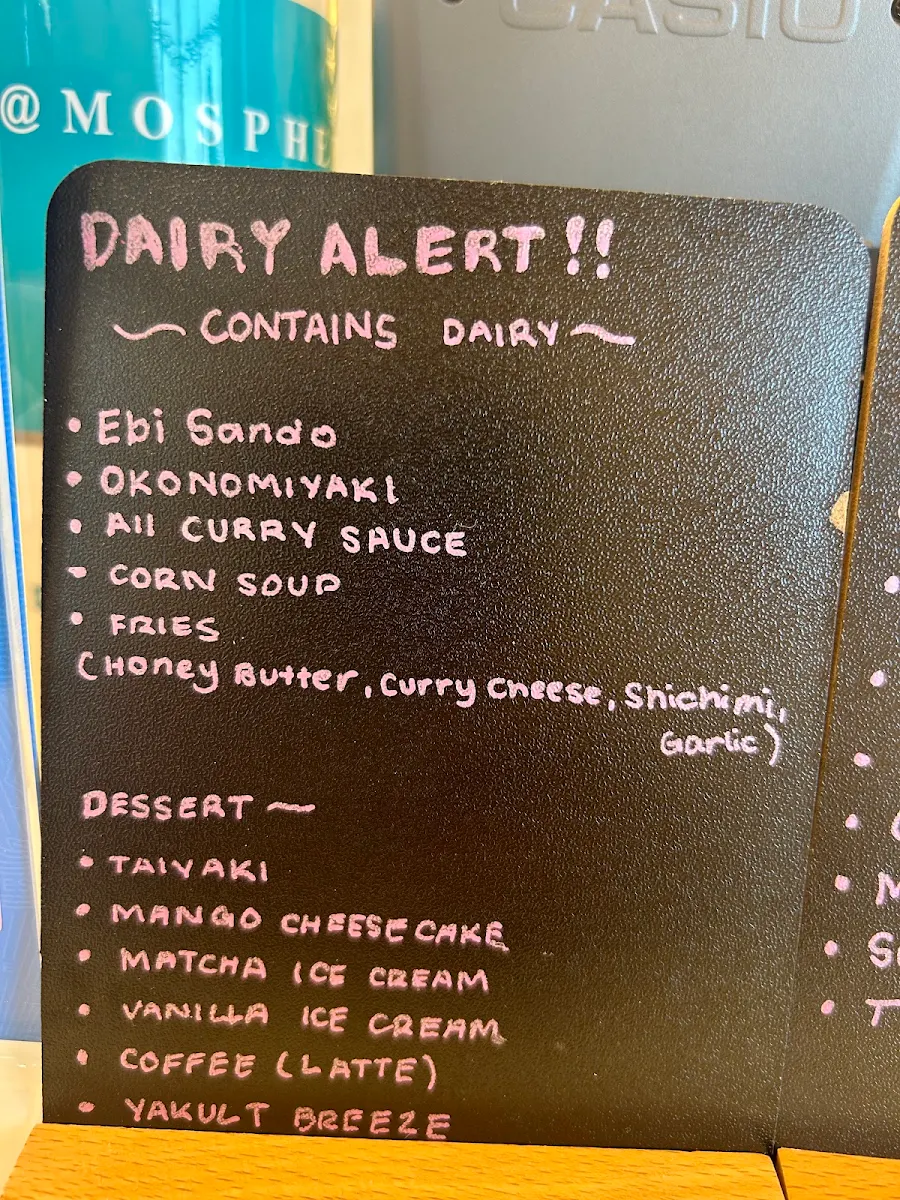 CASIO
@MOSPHE
DAIRY ALERT!!
~ CONTAINS DAIRY ~
• Ebi Sando
• OKONOMIYAKI
• All CURRY SAUCE
- CORN SOUP
• FRIES
(Honey Butter, Curry Cheese, Shichimi,
Garlic)
DESSERT ~
• TAIYAKI
• MANGO CHEESECAKE
• MATCHA ICE CREAM
• VANILLA ICE CREAM
• COFFEE (LATTE)
• YAKULT BREEZE